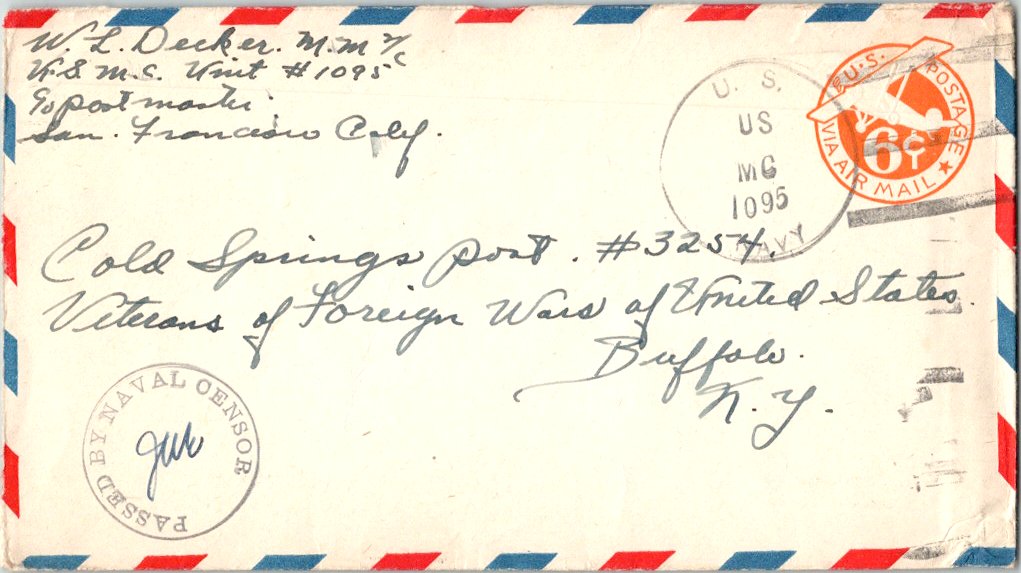 W. L. Decker. M.M 2/c
U.S.M.C. Unit #1095
c/o postmaster.
San. Francisco Calif.
U. S.
US
MC
1095
NAVY
U.S. POSTAGE
6¢
VIA AIR MAIL
Cold Springs post. #3254.
Veterans of Foreign Wars of United States.
Buffalo.
N. Y.
PASSED BY NAVAL CENSOR